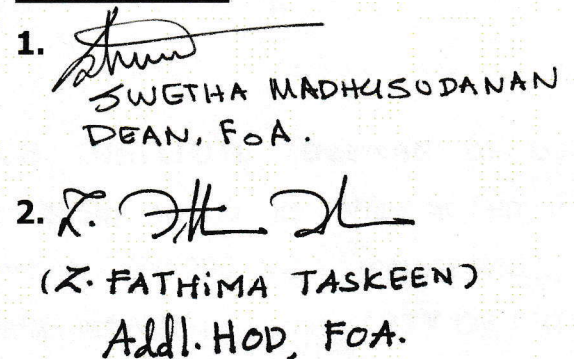 1.
SWETHA MADHUSUDANAN
DEAN, FOA.
2. Z.
(Z. FATHIMA TASKEEN)
Addl. HOD, FOA.